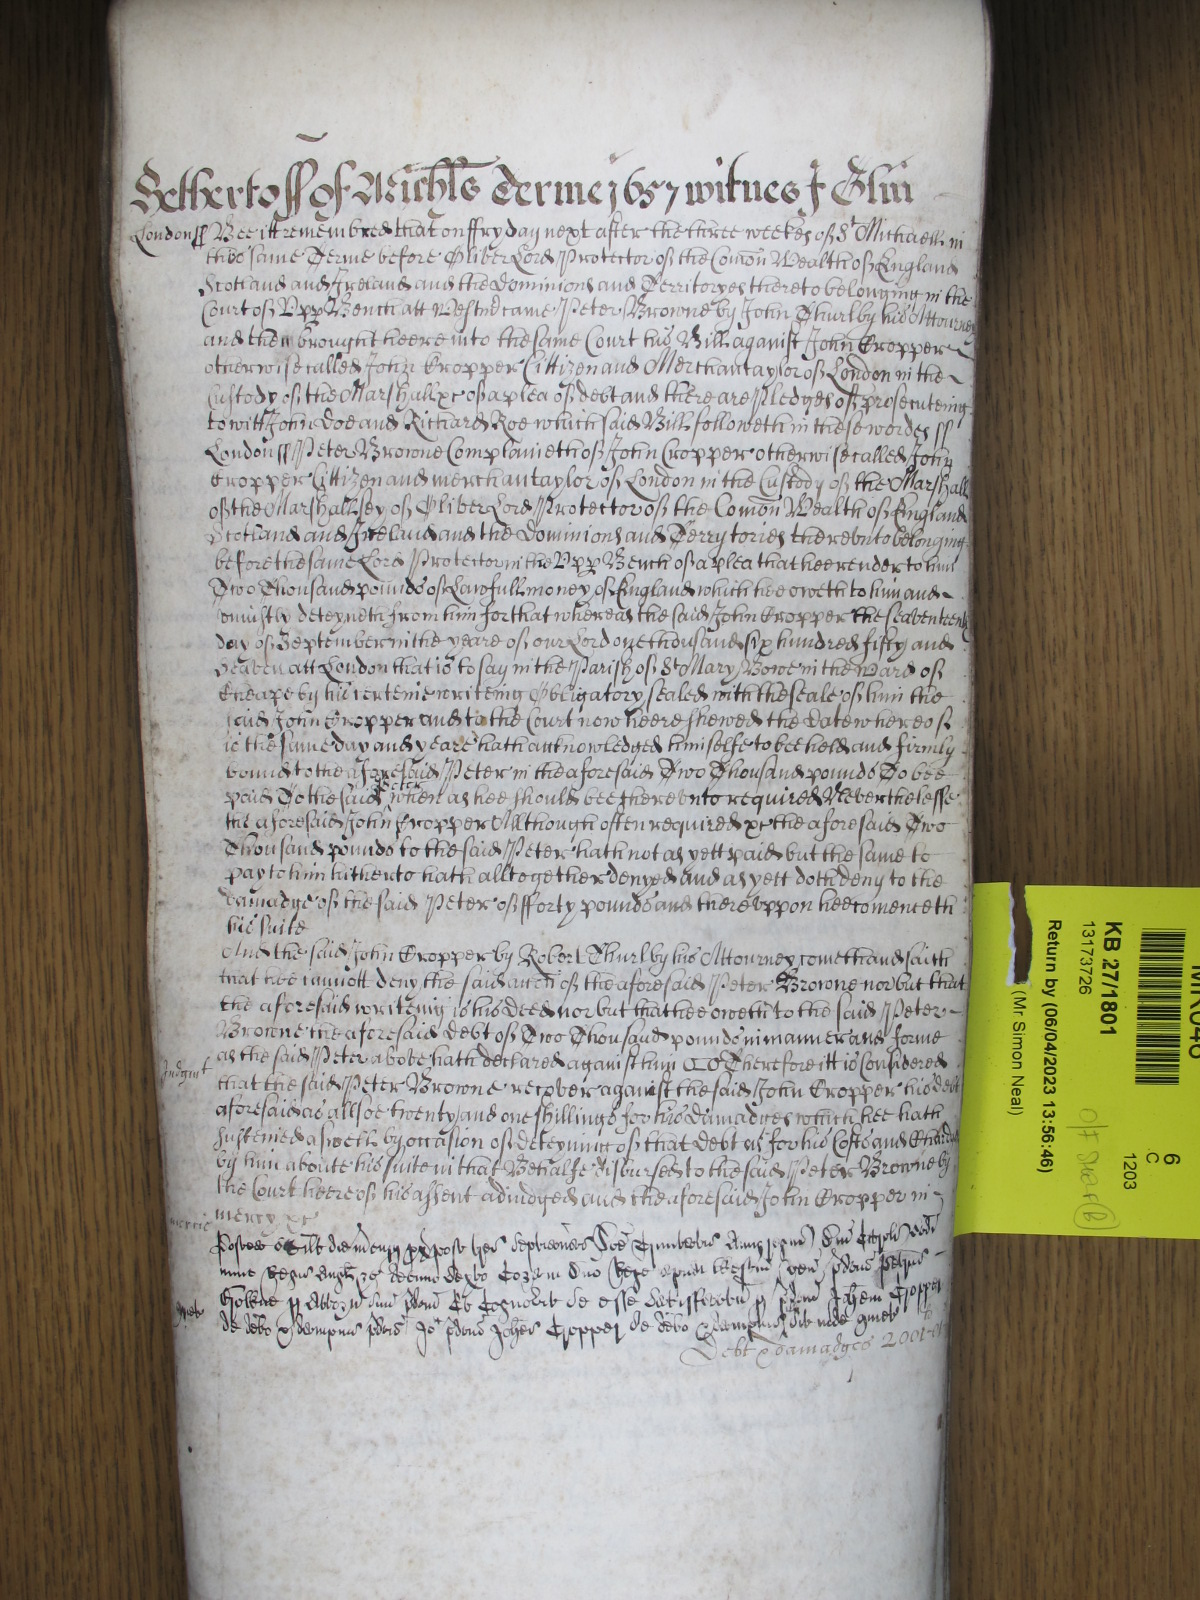 Hetherto ff of Michls Terme 1657 witnes J Glin
London ss Bee itt remembred that on ffryday next after the three weekes of St Michaell in
this same Terme before Oliver Lord Protector of the Comon Wealth of England
Scotland and Ireland and the Dominions and Territoryes thereto belonging in the
Court of Upp Bench att Westm came Peter Browne by John Thurlby his Attourney
and then brought heere into the same Court his Bill against John Cropper
otherwise called John Cropper Cittizen and Merchantaylor of London in the
Custody of the Marshall xc of a plea of debt and there are Pledges of prosecuteing
to witt John Doe and Richard Roe which said Bill followeth in these wordes ss
London ss Peter Browne Complaineth of John Cropper otherwise called John
Cropper Cittizen and merchantaylor of London in the Custody of the Marshall
of the Marshallsey of Oliver Lord Protector of the Comon Wealth of England
Scotland and Ireland and the Dominions and Terrytories thereunto belonging
before the same Lord Protector in the Upp Bench of a plea that hee render to him
Two Thousand pounds of Lawfull money of England which hee oweth to him and
uniustly deteyneth from him for that whereas the said John Cropper the seaventeenth
day of September in the yeare of our Lord one thousand six hundred fifty and
Seaven att London that is to say in the Parish of St Mary Bowe in the Ward of
Cheape by his certeine writeing Obligatory sealed with the seale of him the
said John Cropper and to the Court now heere shewed the date whereof
is the same day and yeare hath acknowledged himselfe to bee held and firmly
bound to the aforesaid Peter in the aforesaid Two Thousand pounds To bee
paid To the said Peter when as hee should bee thereunto required Neverthelesse
the aforesaid John Cropper Although often required xc the aforesaid Two
Thousand pounds to the said Peter hath not as yett paid but the same to
pay to him hitherto hath alltogether denyed and as yett doth deny to the
damadge of the said Peter of fforty pounds and thereuppon hee comenceth
his suite
And the said John Cropper by Robert Thurlby his Attourney cometh and saith
that hee cannott deny the said accon of the aforesaid Peter Browne nor but that
the aforesaid writeing is his deed nor but that hee oweth to the said Peter
Browne the aforesaid debt of Two Thousand pounds in manner and forme
as the said Peter above hath declared against him Therefore itt is Considered
Judgmt
that the said Peter Browne recover against the said John Cropper his debt
aforesaid as allsoe twenty and one shillings for his damadges which hee hath
susteined aswell by occasion of deteyning of that debt as for his Costs and Chardges
by him aboute his suite in that Behalfe disbursed to the said Peter Browne by
the Court heere of his assent adiudged and the aforesaid John Cropper in
mercie
mercy xc
Debt & damadges
KB 27/1801
13173726
Return by (06/04/2023 13:56:46)
(Mr Simon Neal)
6
C
1203